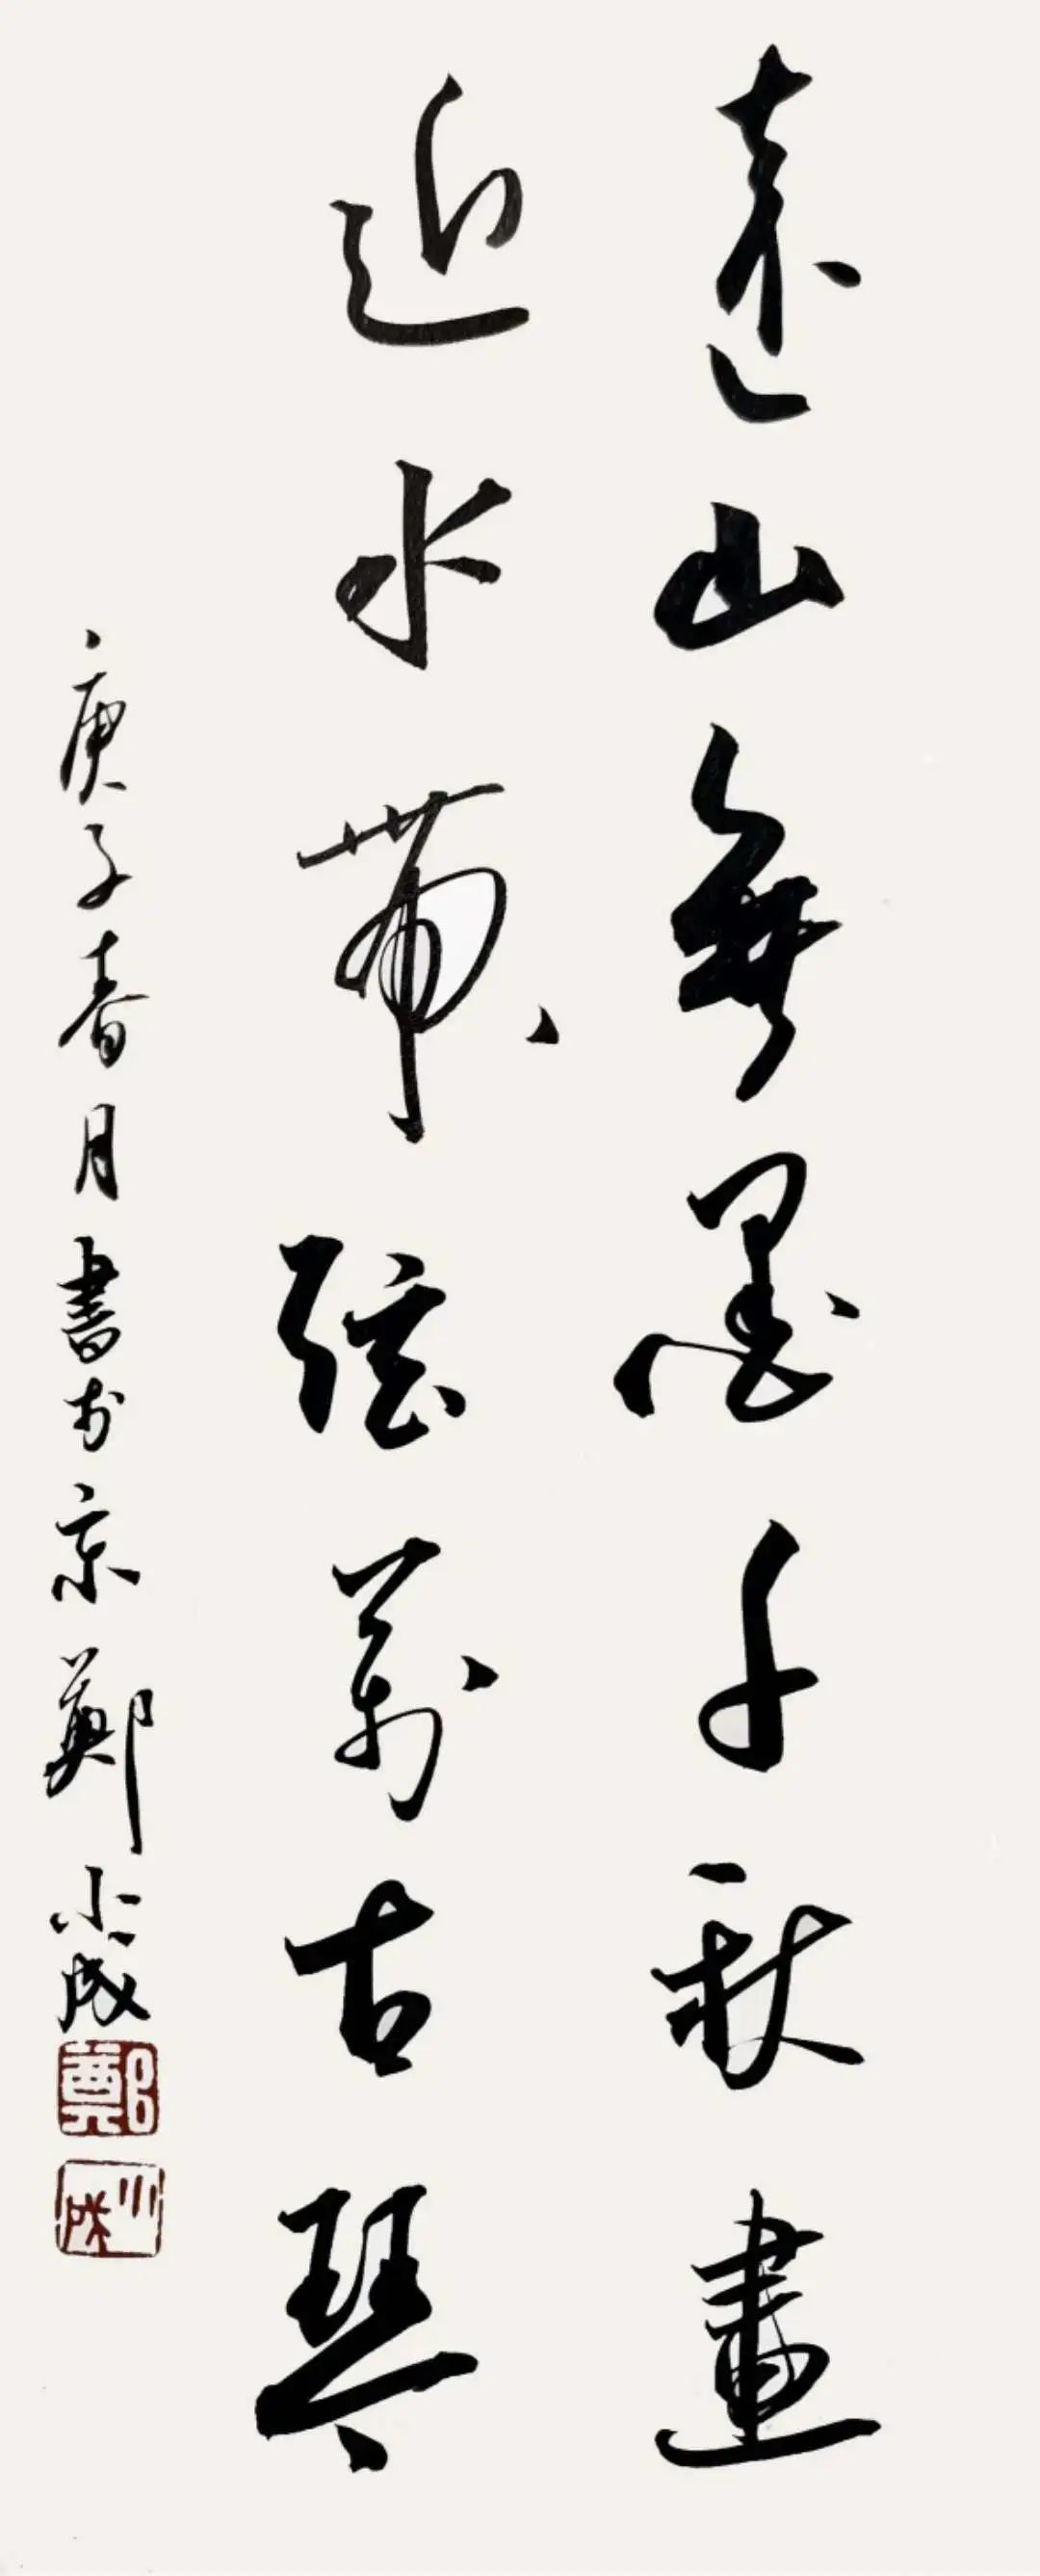 遠山無墨千秋畫
近水帶弦萬古琴
庚子春月書於京鄭小成
鄭
小成